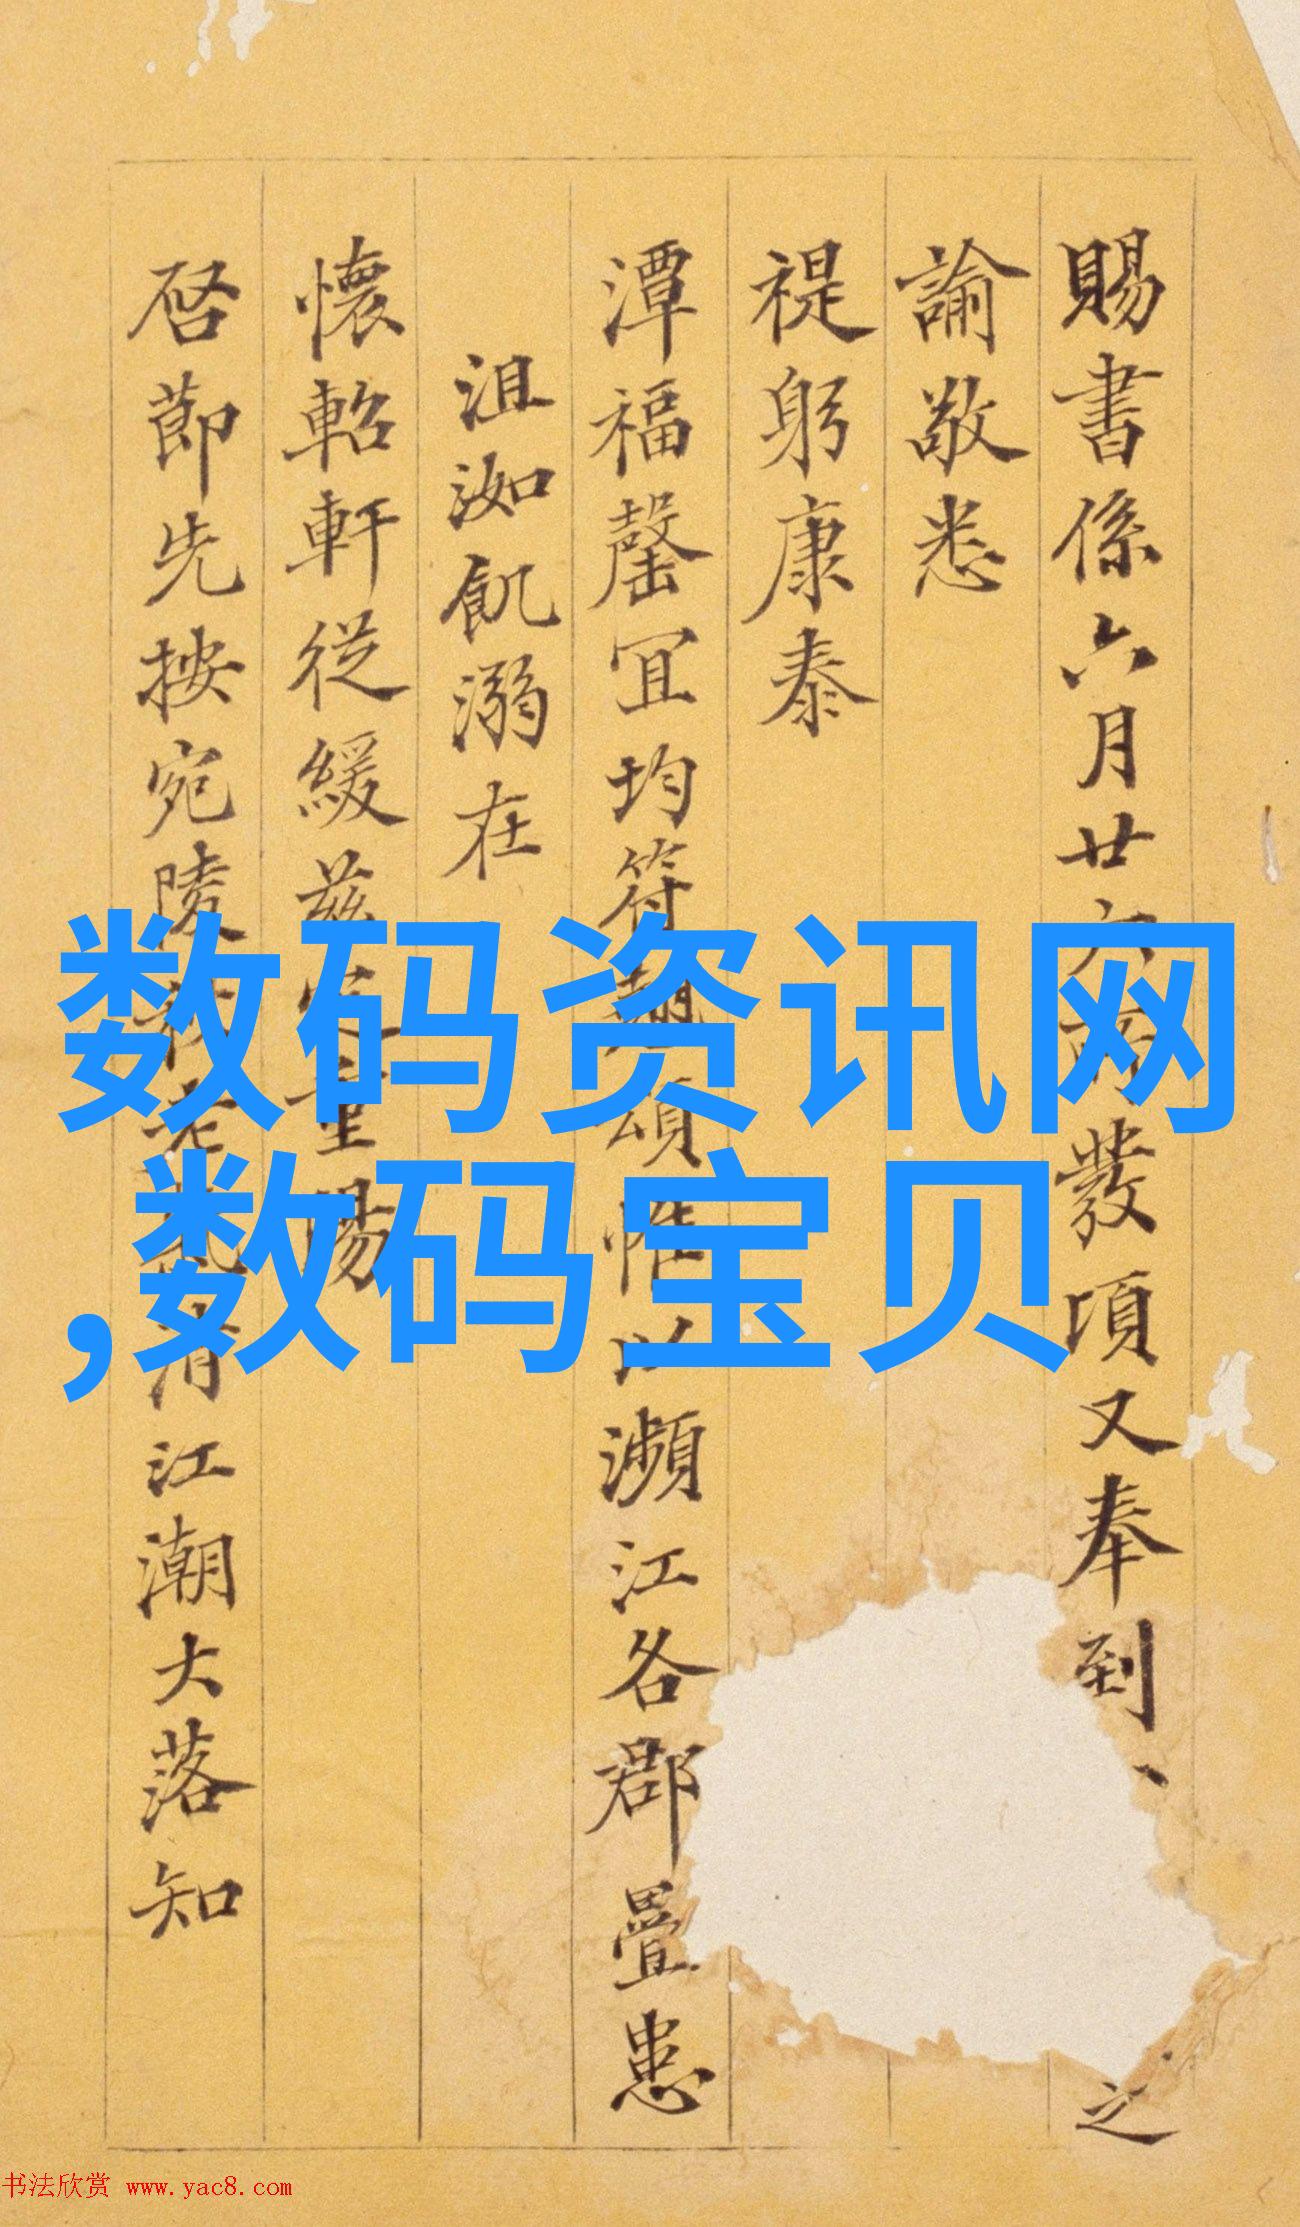 賜書係六月廿六發項又奉到之
諭敬悉
禔躬康泰
潭福罄宜均符頌惟以瀕江各郡疊患
沮洳飢溺在
懷軺軒従緩
啓節先按宛陵江潮大落知
数码资讯网
,数码宝贝
书法欣赏 www.yac8.com